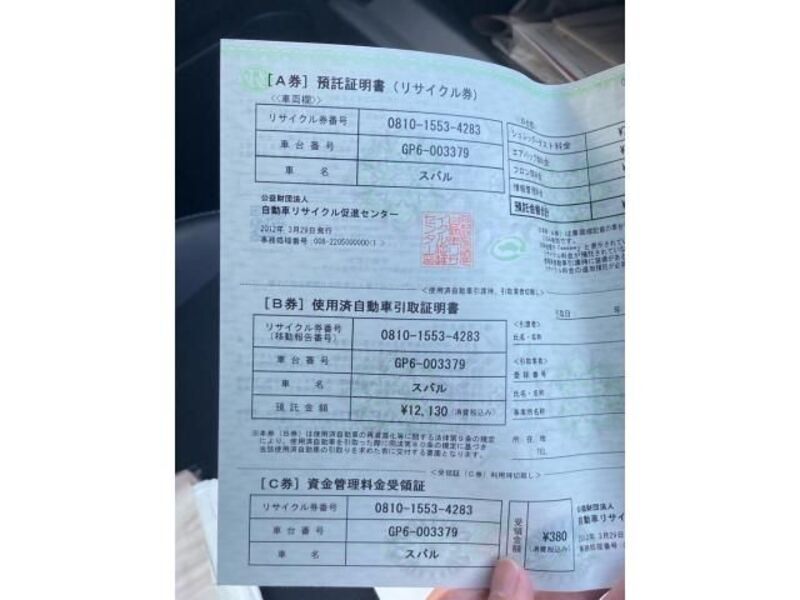 [A券] 預託証明書 (リサイクル券)
<<車両欄>>
リサイクル券番号 0810-1553-4283
車台番号 GP6-003379
車名 スバル
シュレッダーダスト料金 ¥
エアバッグ類料金 ¥
フロン類料金 ¥
情報管理料金 ¥
預託金額合計
公益財団法人
自動車リサイクル促進センター
2012年 3月29日発行
<使用済自動車引渡時、引取業者切離し>
[B券] 使用済自動車引取証明書
リサイクル券番号
(移動報告番号) 0810-1553-4283
車台番号 GP6-003379
車名 スバル
預託金額 ¥12,130 (消費税込み)
年
<引渡者>
氏名・名称
<引取業者>
登録番号
氏名・名称
事業所名称
所在地
TEL
※本券(B券)は使用済自動車の再資源化等に関する法律第9条の規定
により、使用済自動車を引取った際に同法第80条の規定に基づき
当該使用済自動車の引取りを求めた者に交付する書面となります。
<受領証(C券)利用時切離し>
[C券] 資金管理料金受領証
リサイクル券番号 0810-1553-4283
車台番号 GP6-003379
車名 スバル
受領金額 ¥380
(消費税込み)
公益財団法人
自動車リサイ
2012年 3月29日